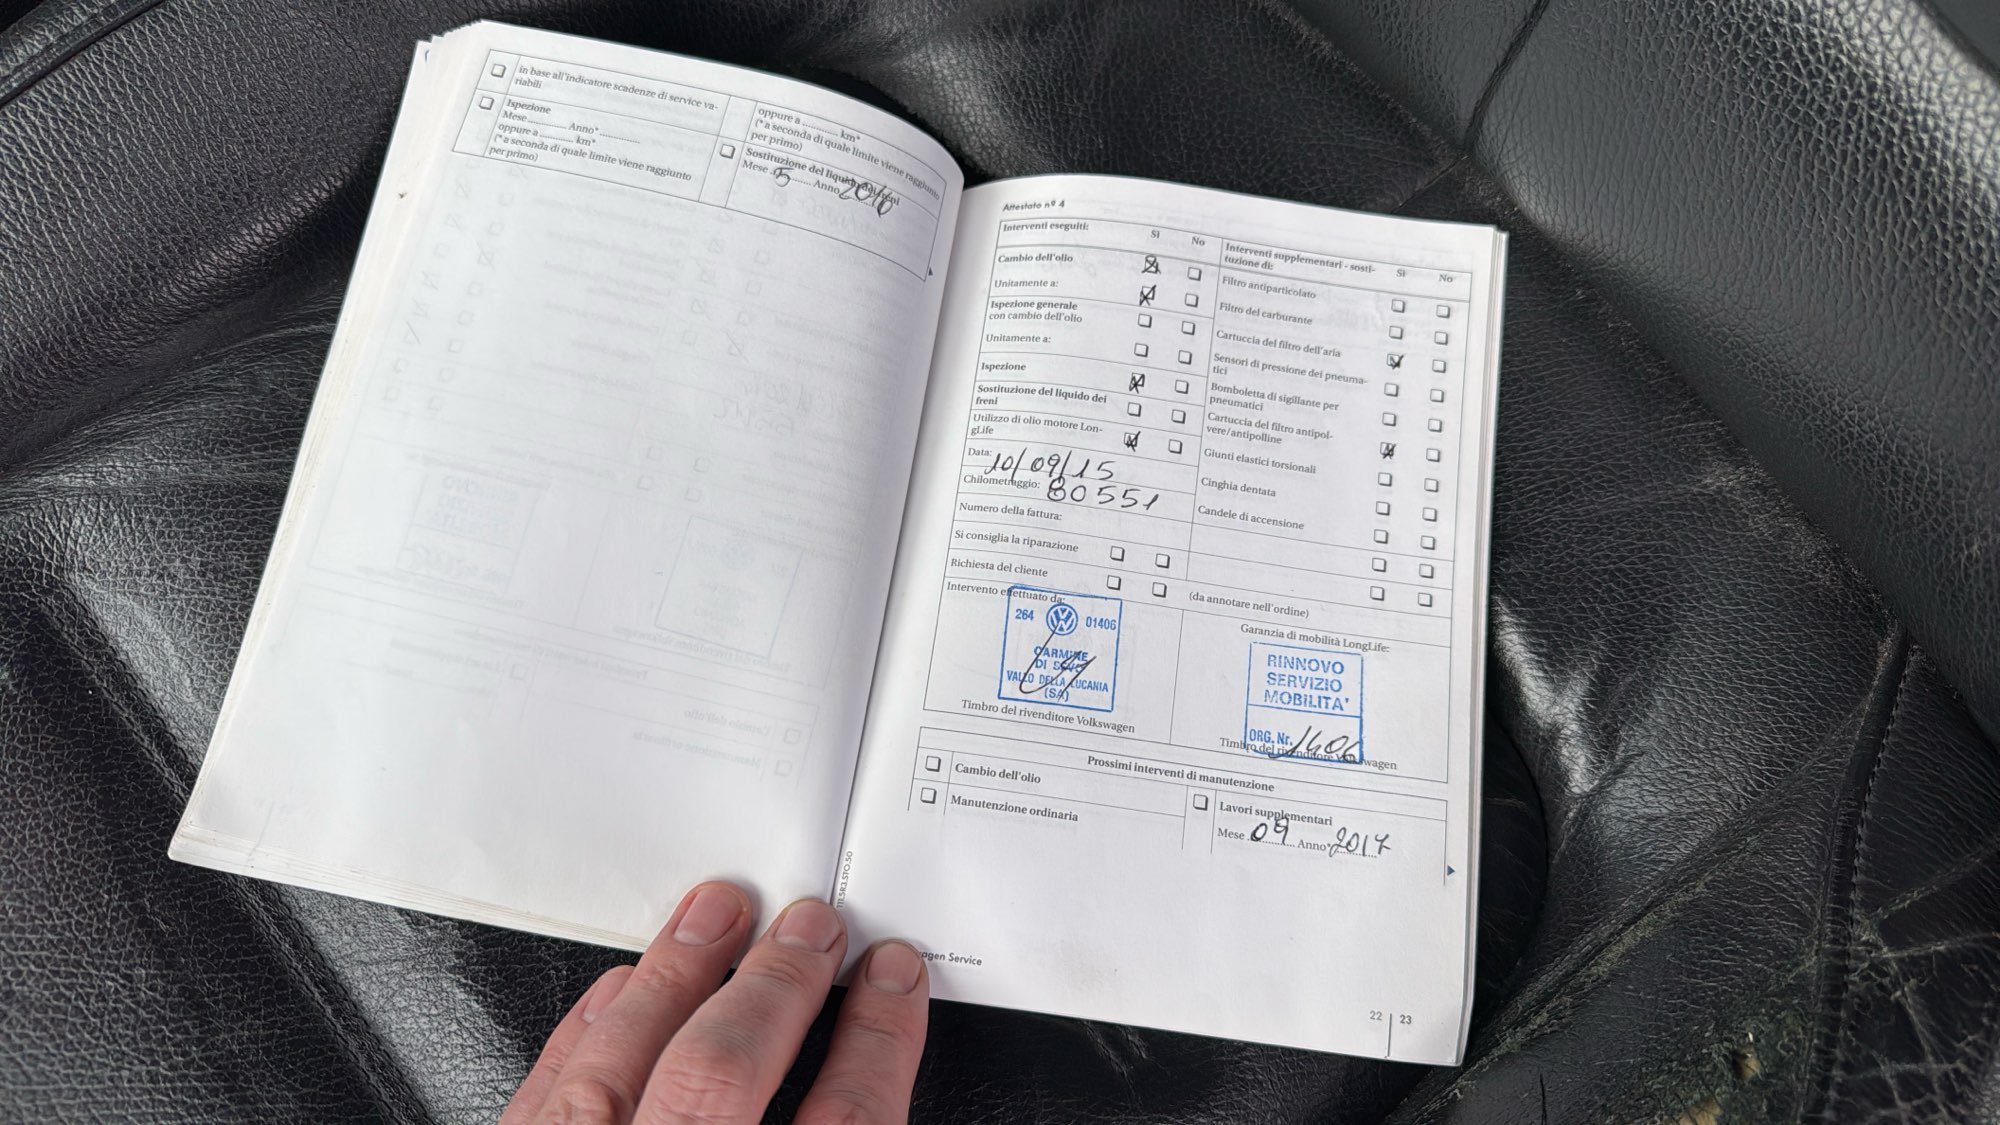 in base all'indicatore scadenze di service va-
riabili
Ispezione
Mese ............ Anno* ............
oppure a ............ km*
(* a seconda di quale limite viene raggiunto
per primo)
oppure a ............ km*
(* a seconda di quale limite viene raggiunto
per primo)
Sostituzione del liquido dei freni
Mese 5 Anno 2016
Attestato nº 4
Interventi eseguiti: Sì No
Cambio dell'olio
Unitamente a:
Ispezione generale
con cambio dell'olio
Unitamente a:
Ispezione
Sostituzione del liquido dei
freni
Utilizzo di olio motore Lon-
gLife
Data: 10/09/15
Chilometraggio: 80551
Numero della fattura:
Si consiglia la riparazione
Richiesta del cliente
Interventi supplementari - sosti-
tuzione di: Sì No
Filtro antiparticolato
Filtro del carburante
Cartuccia del filtro dell'aria
Sensori di pressione dei pneuma-
tici
Bomboletta di sigillante per
pneumatici
Cartuccia del filtro antipol-
vere/antipolline
Giunti elastici torsionali
Cinghia dentata
Candele di accensione
(da annotare nell'ordine)
Intervento effettuato da:
264 01406
CARMINE
DI
VALLO DELLA LUCANIA
(SA)
Timbro del rivenditore Volkswagen
Garanzia di mobilità LongLife:
RINNOVO
SERVIZIO
MOBILITA'
ORG. Nr. 1406
Timbro del rivenditore Volkswagen
Prossimi interventi di manutenzione
Cambio dell'olio
Manutenzione ordinaria
Lavori supplementari
Mese 09 Anno* 2017
111.5R3.STO.50
agen Service
22 23